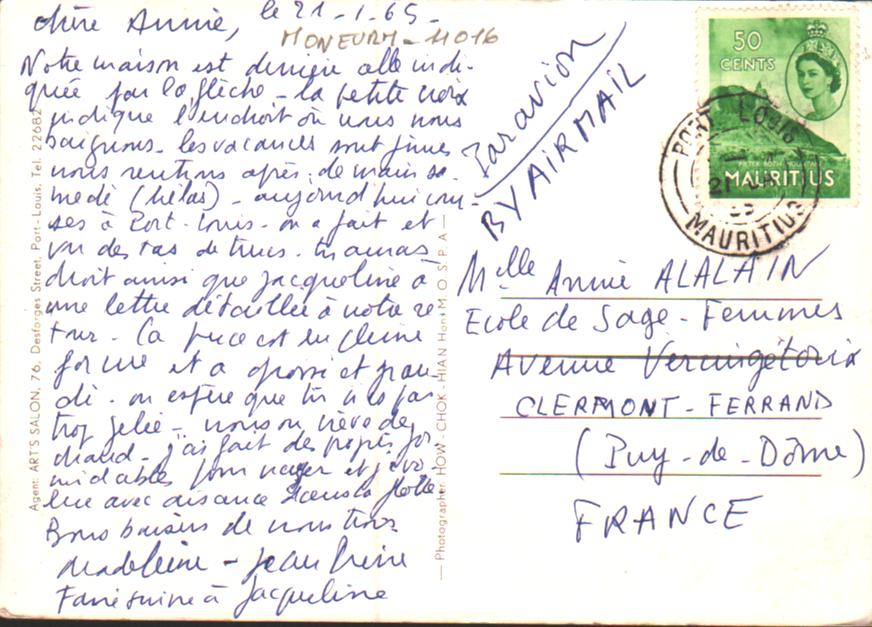 le 21-1-65-
Chère Annie,
MONEURM-11016
Notre maison est derrière celle indi-
quée par la flèche - la petite croix
indique l'endroit où nous nous
baignons. les vacances sont finies
nous rentrons après-demain sa-
medi (hélas) - aujourd'hui cour-
ses à Port-Louis. on a fait et
vu des tas de trucs. tu auras
droit ainsi que Jacqueline à
une lettre détaillée à notre re-
tour. La puce est en pleine
forme et a grossi et gran-
di. on espère que tu n'es pas
trop gelée - nous on crève de
chaud - j'ai fait des progrès for-
midables pour nager et j'évo-
lue avec aisance dans la flotte
Bons baisers de nous trois
Madeleine - Jean Pierre
Faire suivre à Jacqueline
Agent: ART'S SALON, 76, Desforges Street, Port-Louis, Tel. 22682
Photographer HOW-CHOK-HIAN Hon. M.O.S.P.A.
Par avion
BY AIR MAIL
50
CENTS
PIETER BOTH MOUNTAIN
MAURITIUS
PORT LOUIS
21 JA
65
MAURITIUS
Mlle Annie ALALAIN
Ecole de Sage-Femmes
Avenue Vercingétorix
CLERMONT-FERRAND
(Puy-de-Dôme)
FRANCE